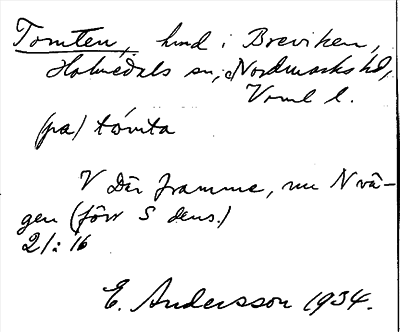 Tomten, hmd i Breviken,
Holmedals sn, Nordmarks hd,
Vrml l.
(pa) tòmta
V Där framme, nu N vä-
gen (förr S dens.)
21:16
E. Andersson 1934.